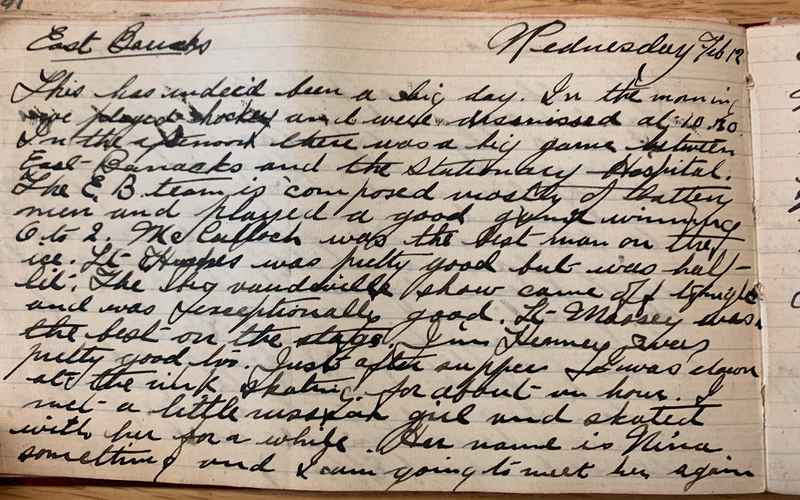 East Barracks Wednesday Feb 12
This has indeed been a big day. In the morning
we played hockey and were dismissed at 10.30.
In the afternoon there was a big game between
East Barracks and the Stationary Hospital.
The E.B. team is composed mostly of Battery
men and played a good game winning
6 to 2. McCulloch was the best man on the
ice. Lt Hughes was pretty good but was half-
lit. The big vaudeville show came off tonight
and was exceptionally good. Lt Massey was
the best on the stage. Jim was
pretty good too. Just after supper I was down
at the rink skating for about an hour. I
met a little russian girl and skated
with her for a while. Her name is Nina
something and I am going to meet her again